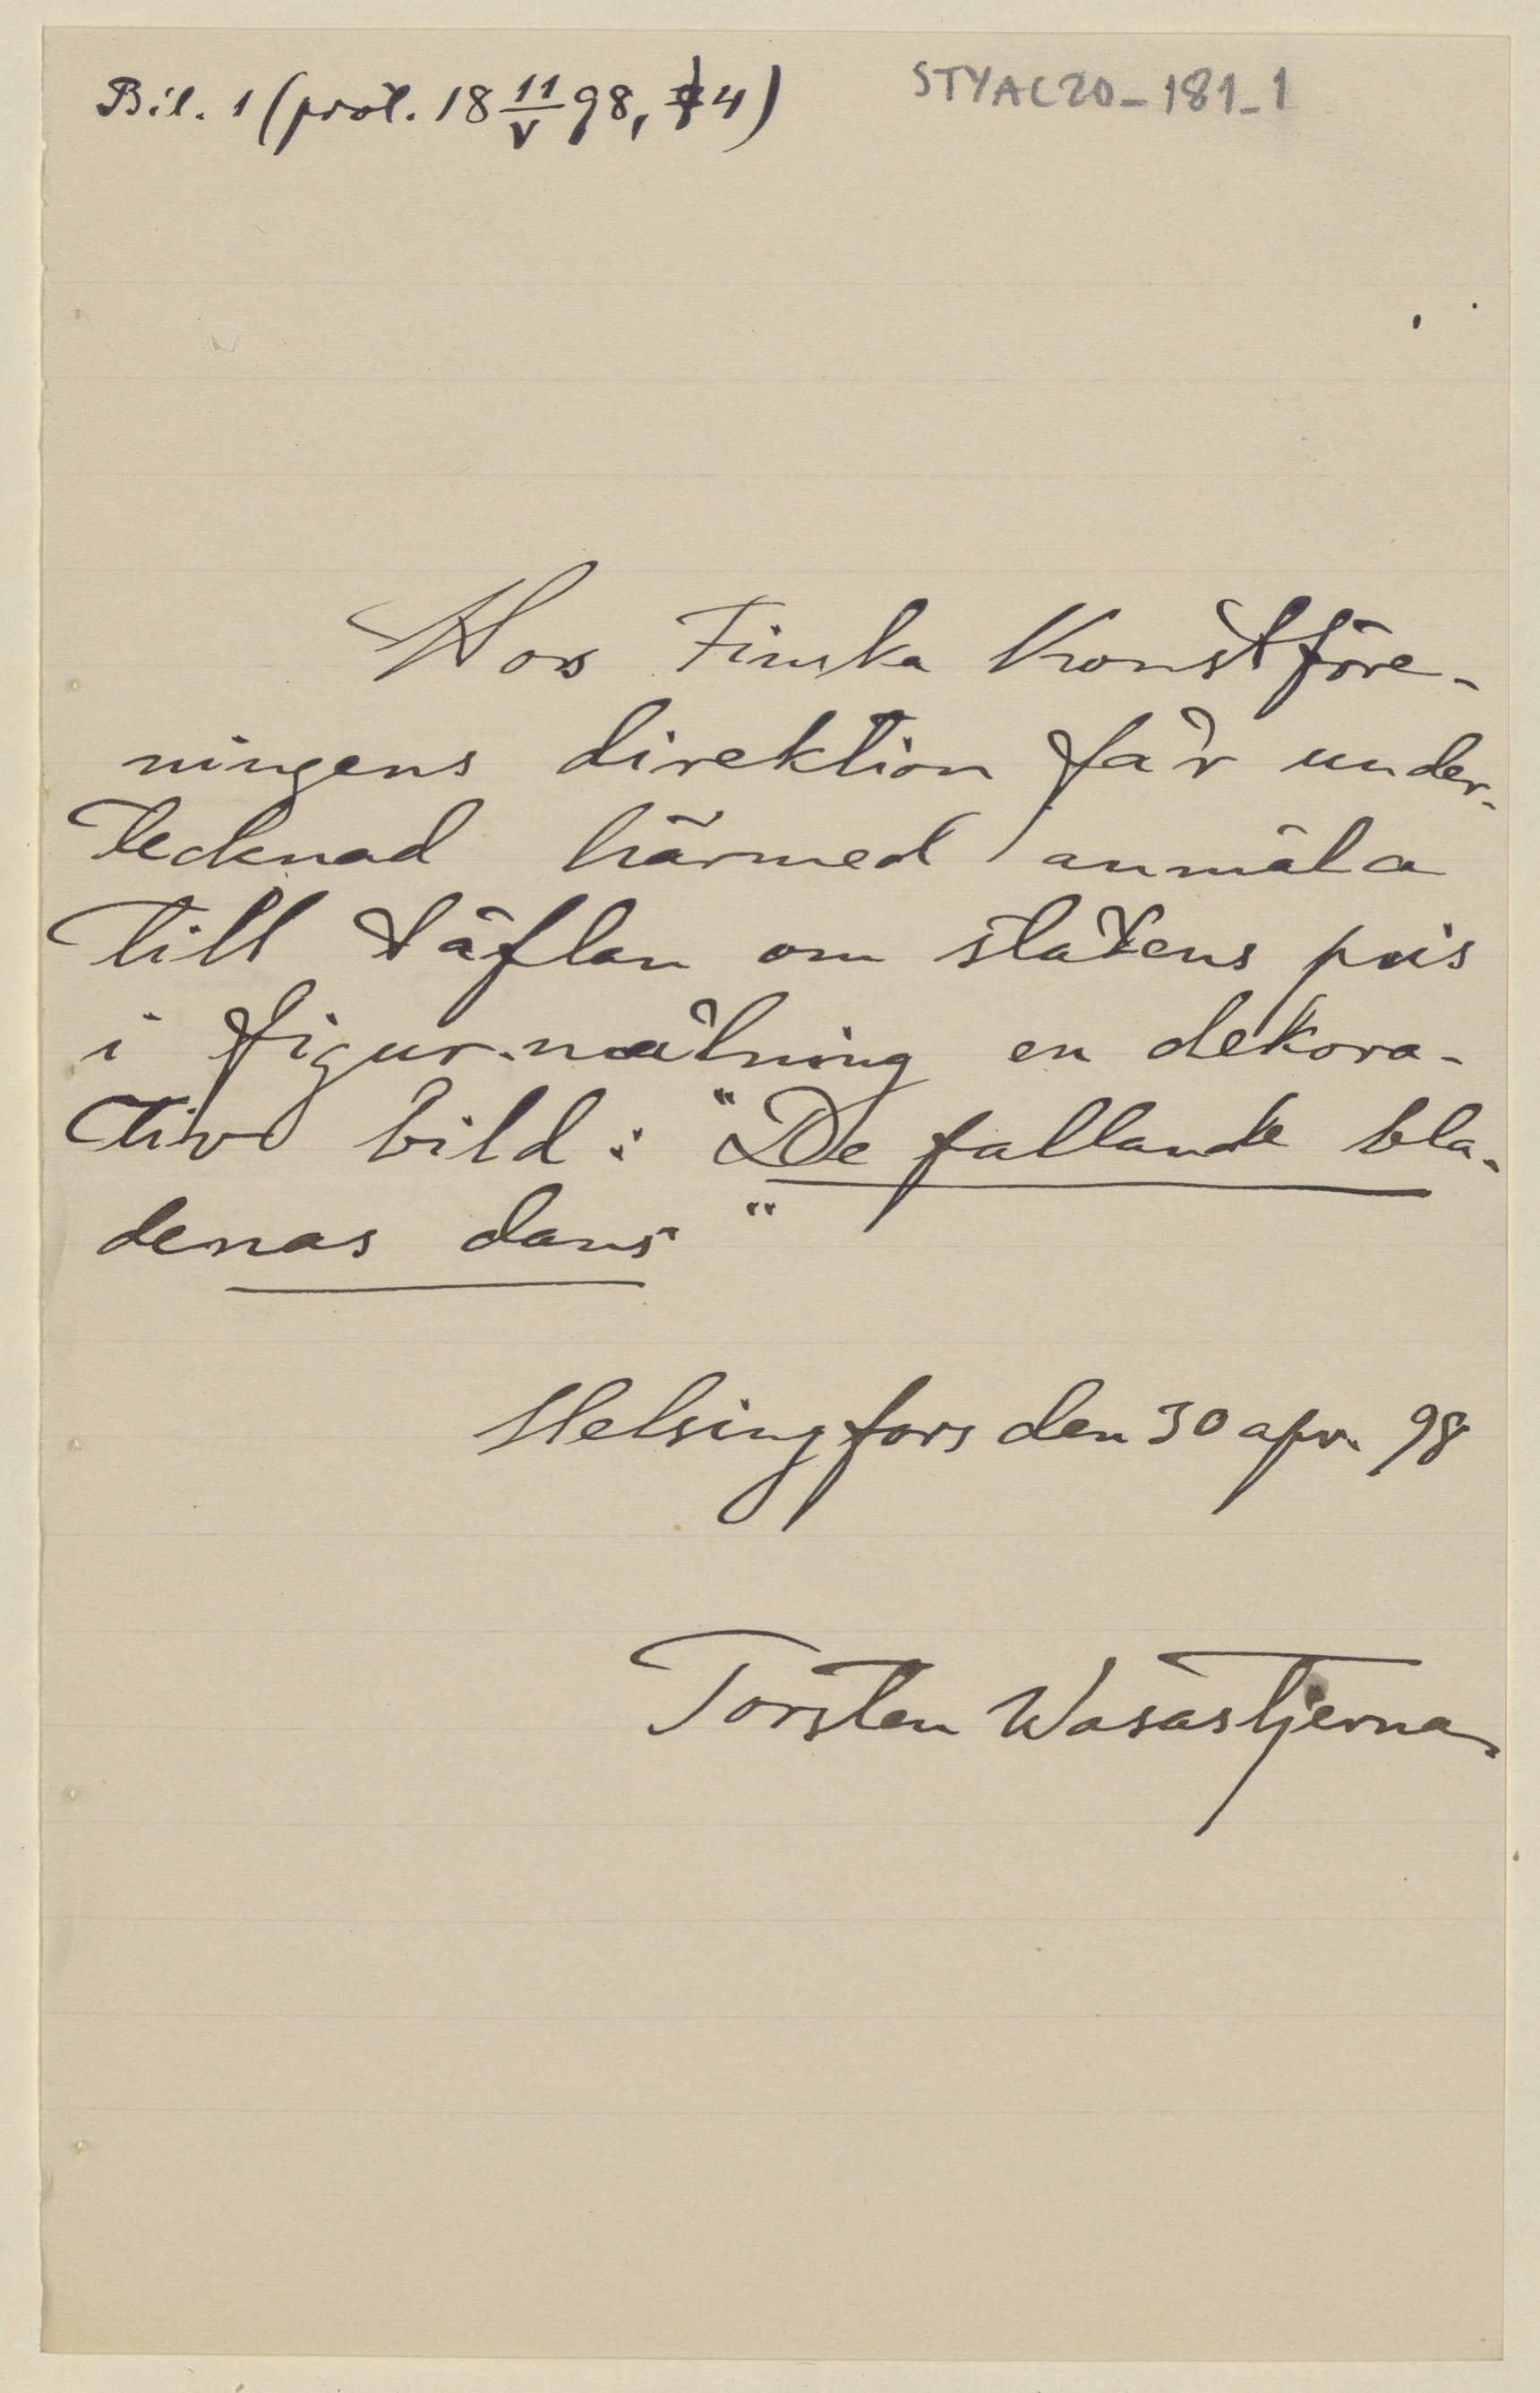 Bil. 1 (prot. 18 11/V 98, § 4)
STYAC20_181_1
Hos Finska Konstföre-
ningens direktion får under-
tecknad härmed anmäla
till täflan om statens pris
i figur-målning en dekora-
tiv bild: "De fallande bla-
denas dans"
Helsingfors den 30 apr. 98
Torsten Wasastjerna